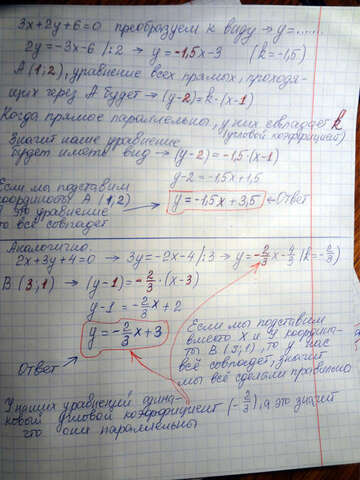 3x+2y+6=0 преобразуем к виду → y=......
2y=-3x-6 |:2 → y=-1,5x-3 (k=-1,5)
A(1;2), уравнение всех прямых, проходя-
щих через A будет → (y-2)=k·(x-1)
Когда прямые параллельны, у них совпадает k
(угловой коэффициент)
Значит наше уравнение
будет иметь вид → (y-2)=-1,5·(x-1)
y-2=-1,5x+1,5
y=-1,5x+3,5 ← Ответ
Если мы подставим
координаты A(1,2)
в это уравнение
то всё совпадёт
Аналогично.
2x+3y+4=0 → 3y=-2x-4|:3 → y=-2/3x-4/3 (k=-2/3)
B(3;1) → (y-1)=-2/3·(x-3)
y-1=-2/3x+2
y=-2/3x+3
Ответ
Если мы подставим
вместо x и y координа-
ты B(3,1), то у нас
всё совпадёт, значит
мы всё сделали правильно
У наших уравнений одина-
ковый угловой коэффициент (-2/3), а это значит
что они параллельны